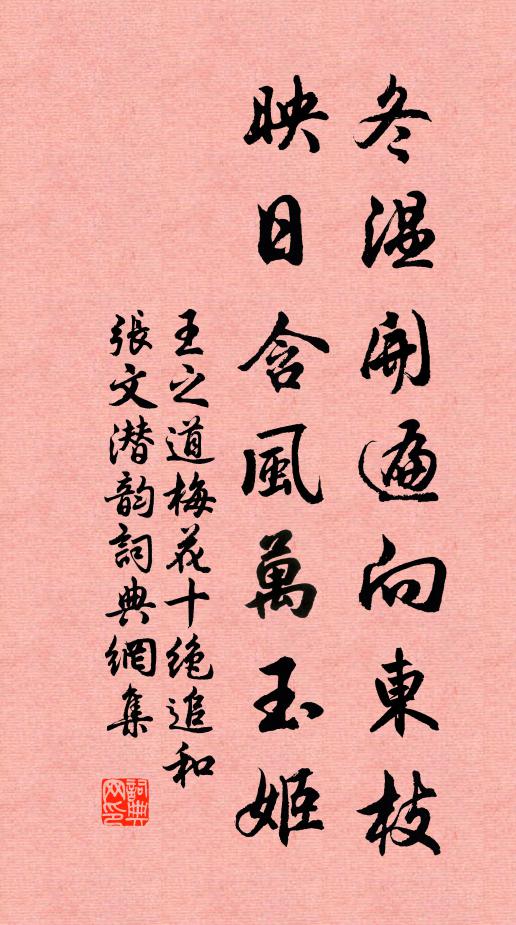 冬温開遍向東枝
映日含風萬玉姬
王之道梅花十绝追和
張文潜韵詞典網集
詞典网印